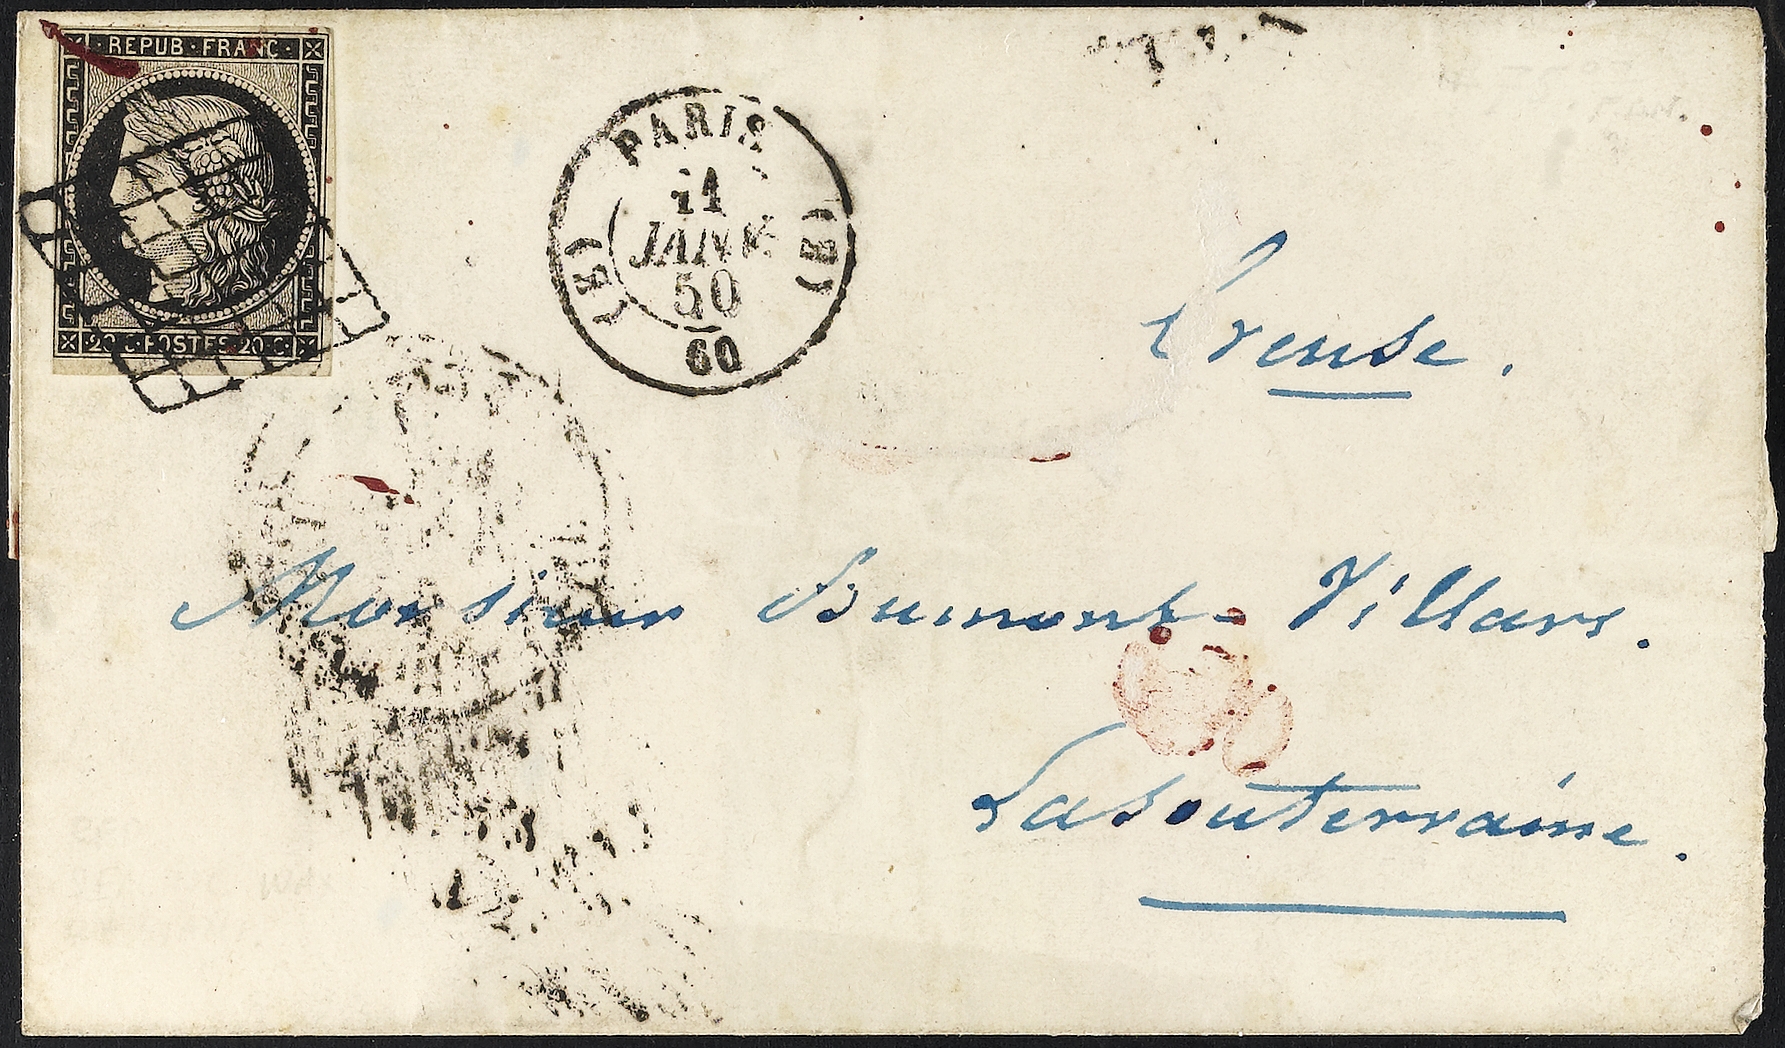 REPUB · FRANC ·
20 C · POSTES · 20 C ·
PARIS
(E) (E)
11
JANV
50
60
Creuse.
Monsieur Dumont-Villars.
Lasouterraine.